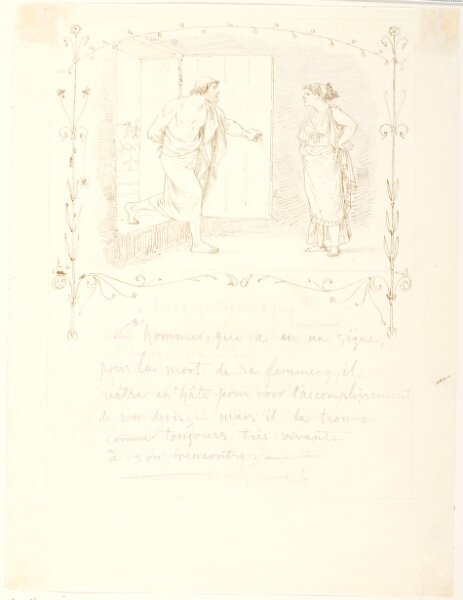 L'homme, que a eu un signe,
pour la mort de sa femme, il
rentre en hâte pour voir l'accomplissement
de son désir; mais il la trouve
comme toujours très vivante
à son rencontre.